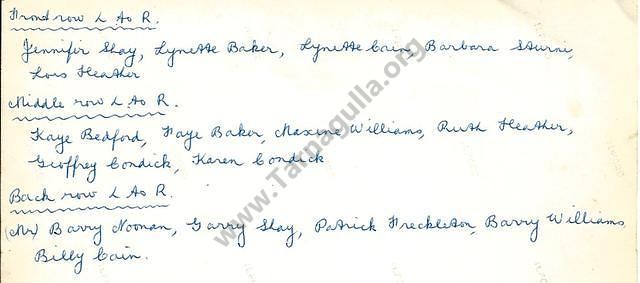 Frond row L to R.
Jennifer Shay, Lynette Baker, Lynette Cain, Barbara Sturni,
Lois Heather
Middle row L to R.
Kaye Bedford, Faye Baker, Maxine Williams, Ruth Heather,
Geoffrey Condick, Karen Condick
Back row L to R.
(Mr) Barry Noonan, Garry Shay, Patrick Freckleton, Barry Williams
Billy Cain.
www.Tarnagulla.org